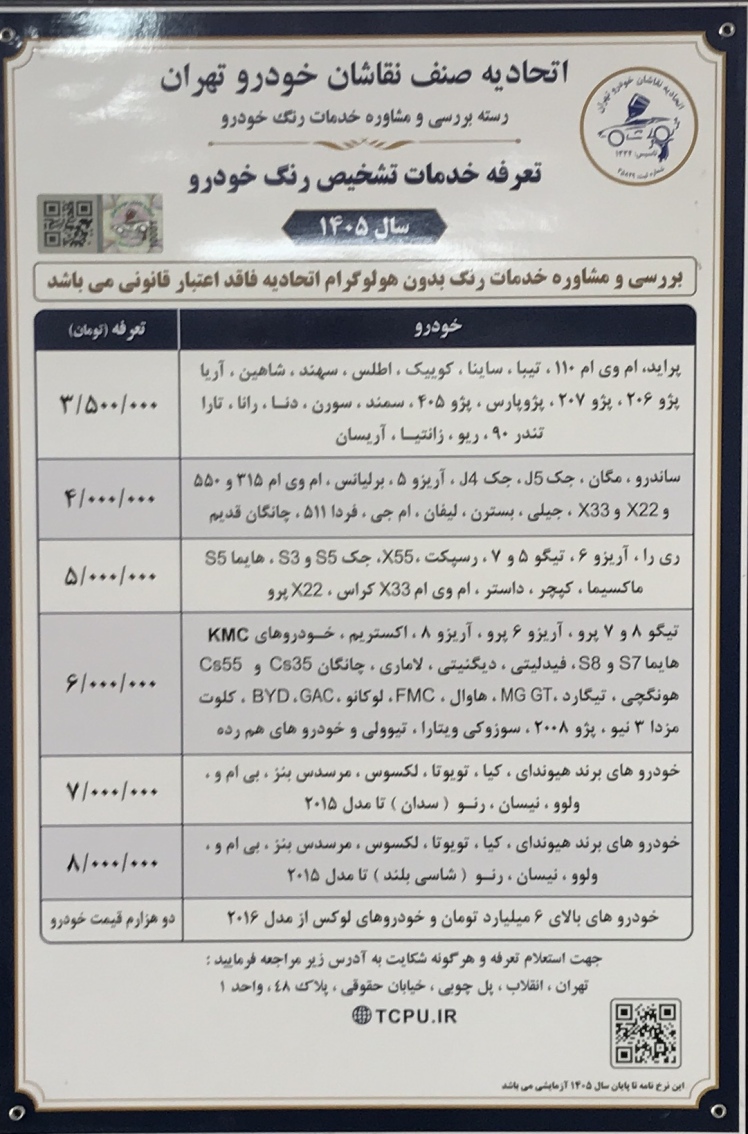 اتحادیه صنف نقاشان خودرو تهران
رسته بررسی و مشاوره خدمات رنگ خودرو
تعرفه خدمات تشخیص رنگ خودرو
سال ۱۴۰۵
اتحادیه نقاشان خودرو تهران
تاسیس: ۱۳۳۶
شماره ثبت:
بررسی و مشاوره خدمات رنگ بدون هولوگرام اتحادیه فاقد اعتبار قانونی می باشد
خودرو
تعرفه (تومان)
پراید، ام وی ام ۱۱۰ ، تیبا ، ساینا ، کوییک ، اطلس ، سهند ، شاهین ، آریا
پژو ۲۰۶ ، پژو ۲۰۷ ، پژوپارس ، پژو ۴۰۵ ، سمند ، سورن ، دنا ، رانا ، تارا
تندر ۹۰ ، ریو ، زانتیا ، آریسان
۳/۵۰۰/۰۰۰
ساندرو ، مگان ، جک J5، جک J4 ، آریزو ۵ ، برلیانس ، ام وی ام ۳۱۵ و ۵۵۰
و X22 و X33 ، جیلی ، بسترن ، لیفان ، ام جی ، فردا ۵۱۱ ، چانگان قدیم
۴/۰۰۰/۰۰۰
ری را ، آریزو ۶ ، تیگو ۵ و ۷ ، رسپکت ،X55، جک S5 و S3 ، هایما S5
ماکسیما ، کپچر ، داستر ، ام وی ام X33 کراس ، X22 پرو
۵/۰۰۰/۰۰۰
تیگو ۸ و ۷ پرو ، آریزو ۶ پرو ، آریزو ۸ ، اکستریم ، خودروهای KMC
هایما S7 و S8 ، فیدلیتی ، دیگنیتی ، لاماری ، چانگان Cs35 و Cs55
هونگچی ، تیگارد ،MG GT ، هاوال ، FMC ، لوکانو ،BYD ،GAC ، کلوت
مزدا ۳ نیو ، پژو ۲۰۰۸ ، سوزوکی ویتارا ، تیوولی و خودرو های هم رده
۶/۰۰۰/۰۰۰
خودرو های برند هیوندای ، کیا ، تویوتا ، لکسوس ، مرسدس بنز ، بی ام و ،
ولوو ، نیسان ، رنو ( سدان ) تا مدل ۲۰۱۵
۷/۰۰۰/۰۰۰
خودرو های برند هیوندای ، کیا ، تویوتا ، لکسوس ، مرسدس بنز ، بی ام و ،
ولوو ، نیسان ، رنو ( شاسی بلند ) تا مدل ۲۰۱۵
۸/۰۰۰/۰۰۰
خودرو های بالای ۶ میلیارد تومان و خودروهای لوکس از مدل ۲۰۱۶
دو هزارم قیمت خودرو
جهت استعلام تعرفه و هرگونه شکایت به آدرس زیر مراجعه فرمایید :
تهران ، انقلاب ، پل چوبی ، خیابان حقوقی ، پلاک ۴۸ ، واحد ۱
TCPU.IR
این نرخ نامه تا پایان سال ۱۴۰۵ آزمایشی می باشد